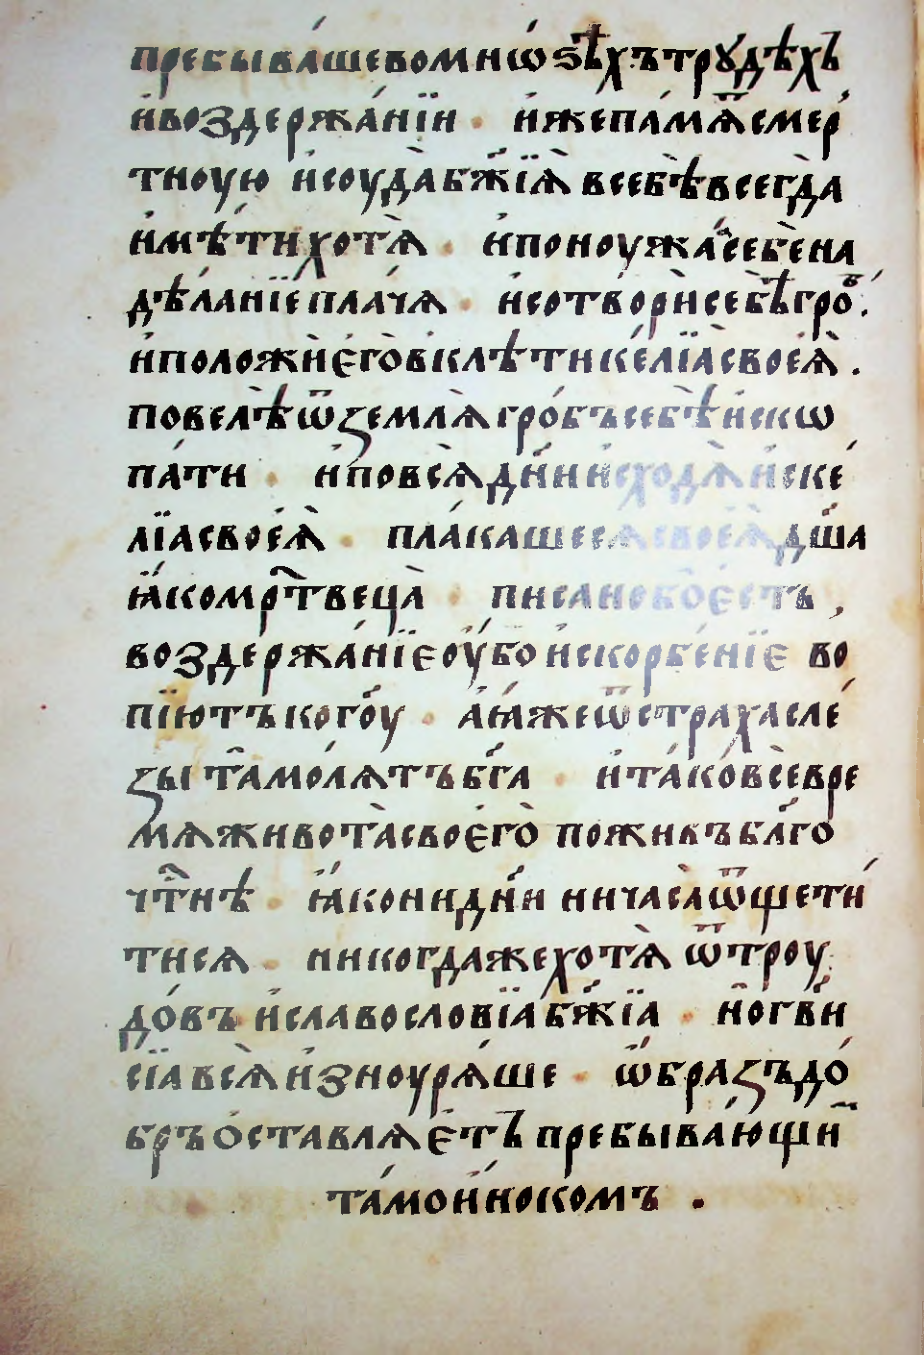 пребыва́шевомнѡ́ѕѣ́хътрꙋдѣ́хъ
и҆воздержа́нїи · и҆́жепа́мѧⷮсмер
тноую и҆соуда̀бж҃їѧ̀ всебѣ̀всегда̀
и҆мѣ́тихотѧ̀ · и҆поноужа́ѧсебѐна
дѣ́ланїеплачѧ̀ · и҆сотворѝсебѣ̀гроⷠ.
и҆положѝє҆го̀вклѣ́тике́лїасвоеѧ̀ .
повелѣ̀ѿꙁемлѧ̀гро́бъсебѣ̀и҆скѡ
па́ти · и҆повсѧ̀дн҃ии҆сходѧ̀и҆ске́
лїасвоеѧ̀ · пла́кашеесѧсвоеѧ̀дш҃а
ꙗ҆́комр҃твеца̀ · писанобо̀є҆сть ,
воздержа́нїеоу҆́бои҆скорбе́нїе во
пїю́тъкого҃у · а҆ꙗ҆́жеѿстрахасле́
ꙁыт҃амо́лѧтъбг҃а · и҆та́ковсѐвре
мѧживота̀своего̀ поживъбл҃го
чт҃нѣ ꙗ҆́конидн҃и ничаса̀ѿщети́
тисѧ · никогдажехотѧ̀ ѿтроу
до́въ и҆славословїабж҃їа · и҆́огв҃и
сїавсѧ̀и҆знурѧ́ше · ѡ҆́браꙁъдо́
бръо҆ставлѧ́етъ пребыва́ющиⷨ
та́мои҆́нокомъ .